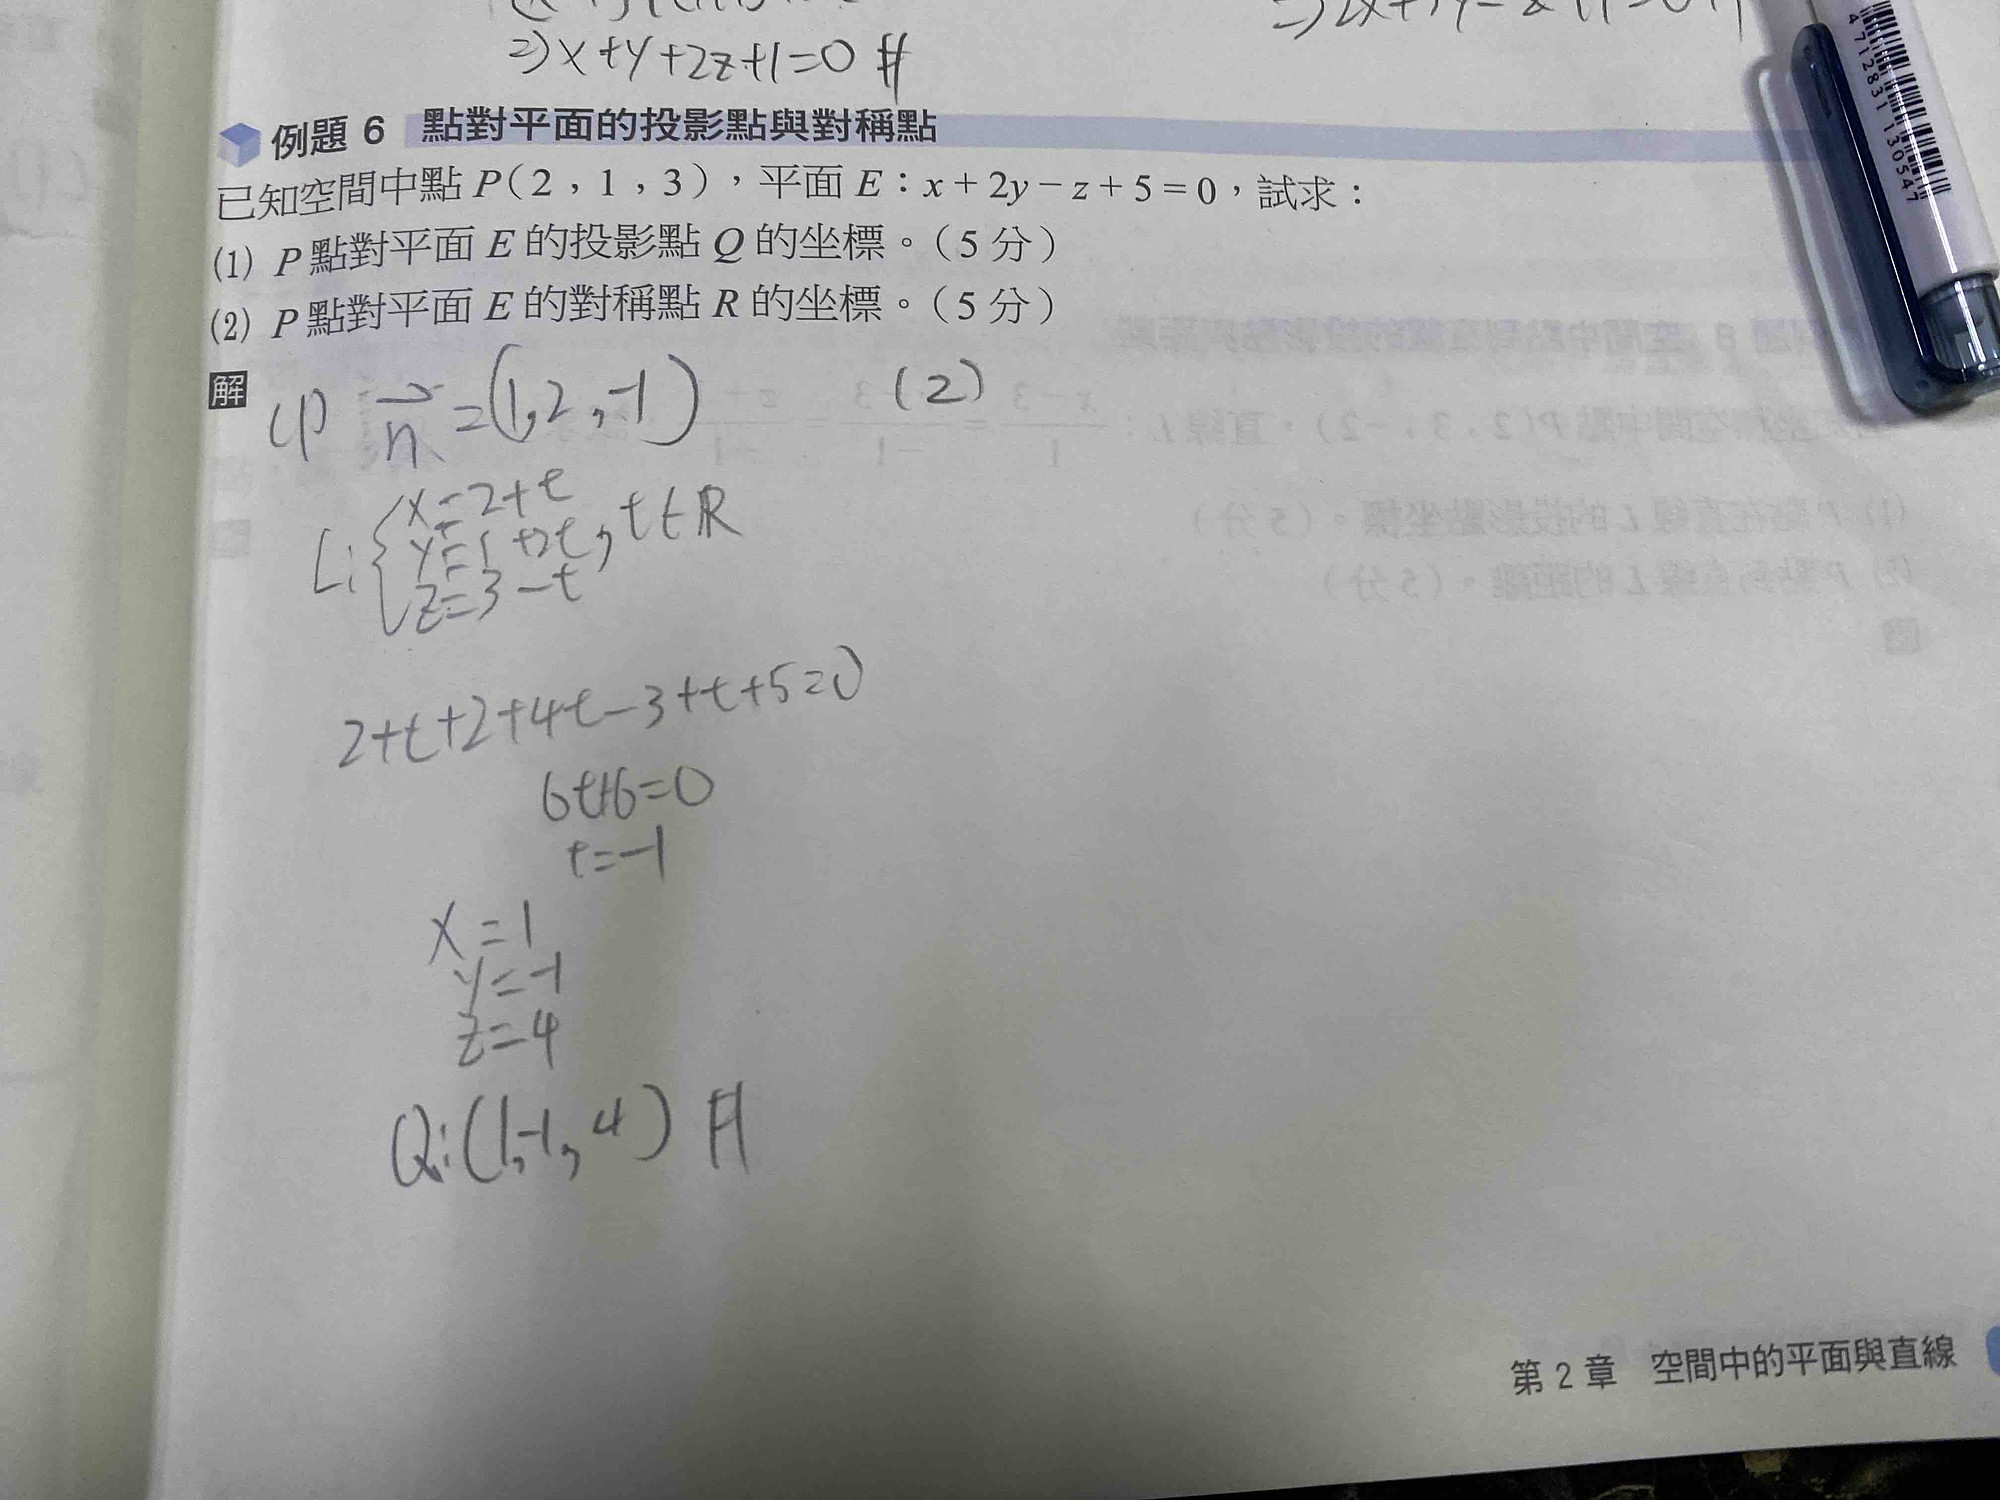 ⇒x+y+2z+1=0 #
例題 6 點對平面的投影點與對稱點
已知空間中點 P(2,1,3),平面 E:x+2y-z+5=0,試求:
(1) P 點對平面 E 的投影點 Q 的坐標。(5 分)
(2) P 點對平面 E 的對稱點 R 的坐標。(5 分)
解
(1) n⃗=(1,2,-1)
(2)
L: { x=2+t
y=1+2t, t∈R
z=3-t
2+t+2+4t-3+t+5=0
6t+6=0
t=-1
x=1
y=-1
z=4
Q:(1,-1,4) #
第 2 章 空間中的平面與直線
4 712831 130547